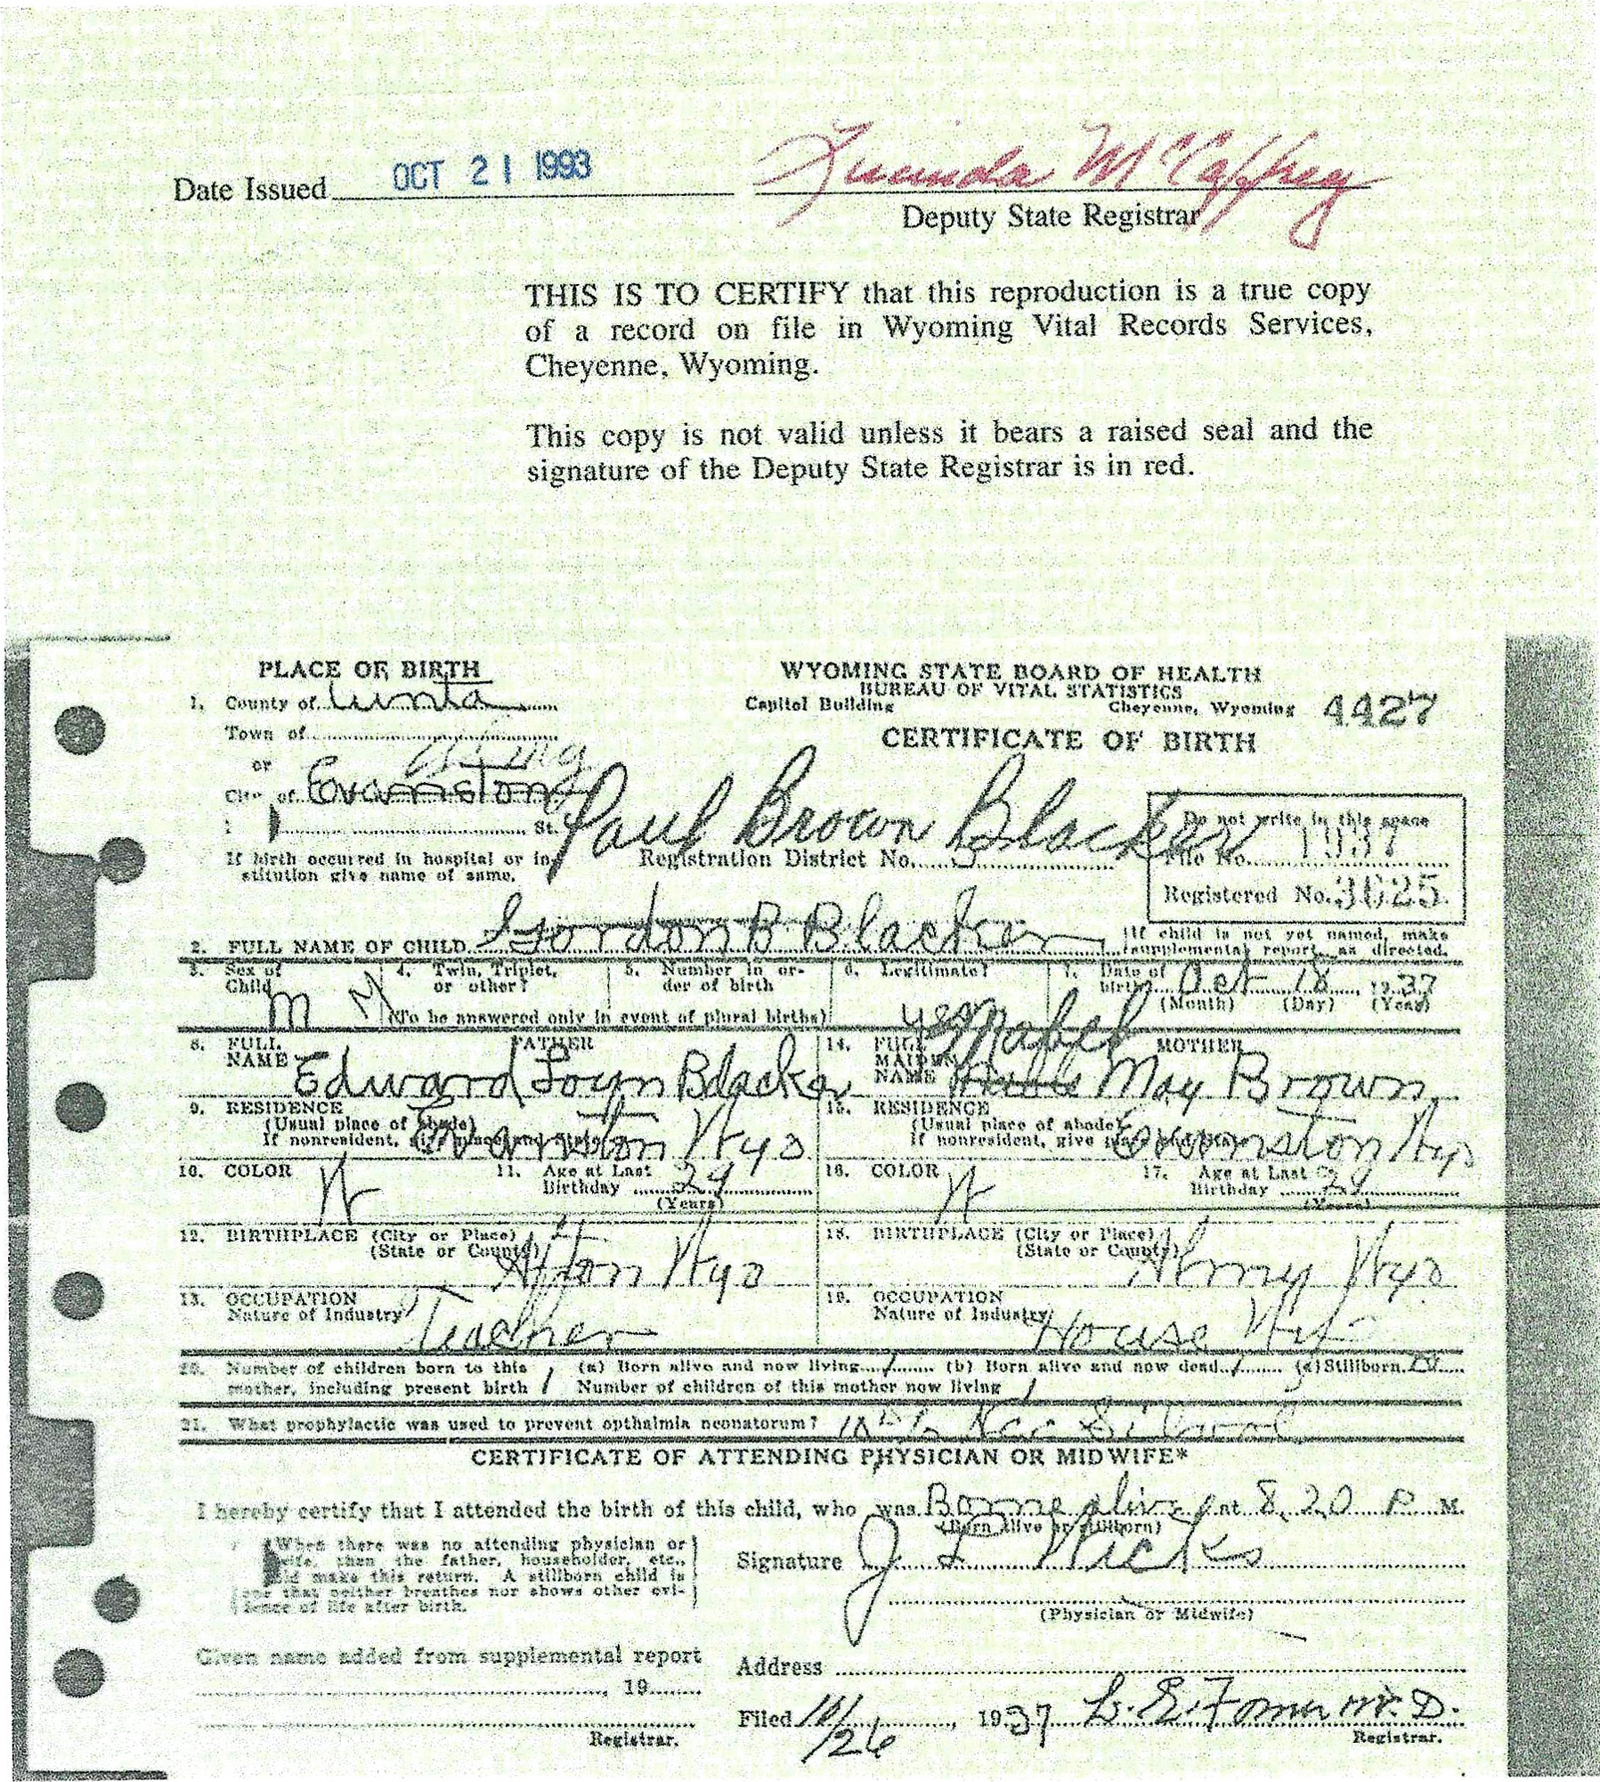 Date Issued OCT 21 1993 Lucinda McCaffrey
Deputy State Registrar
THIS IS TO CERTIFY that this reproduction is a true copy
of a record on file in Wyoming Vital Records Services,
Cheyenne, Wyoming.
This copy is not valid unless it bears a raised seal and the
signature of the Deputy State Registrar is in red.
PLACE OF BIRTH
WYOMING STATE BOARD OF HEALTH
BUREAU OF VITAL STATISTICS
Capitol Building Cheyenne, Wyoming 4427
CERTIFICATE OF BIRTH
1. County of Uinta
Town of
or
City of Evanston
St.
Paul Brown Blacker
If birth occurred in hospital or in-
stitution give name of same.
Registration District No.
Do not write in this space
File No. 1937
Registered No. 3625
2. FULL NAME OF CHILD Gordon B Blacker
(If child is not yet named, make
supplemental report, as directed.
3. Sex of Child M M
4. Twin, Triplet, or other?
5. Number in or-
der of birth
(To be answered only in event of plural births)
6. Legitimate? yes
7. Date of birth Oct 18, 1937
(Month) (Day) (Year)
8. FULL NAME FATHER
Edward Loyn Blacker
14. FULL MAIDEN NAME MOTHER
Mabel May Brown
9. RESIDENCE
(Usual place of abode)
If nonresident, give place and state
Evanston Wyo
15. RESIDENCE
(Usual place of abode)
If nonresident, give place and state
Evanston Wyo
10. COLOR W
11. Age at Last Birthday 29
(Years)
16. COLOR W
17. Age at Last Birthday 29
(Years)
12. BIRTHPLACE (City or Place)
(State or County)
Afton Wyo
18. BIRTHPLACE (City or Place)
(State or County)
Almy Wyo
13. OCCUPATION
Nature of Industry
Teacher
19. OCCUPATION
Nature of Industry
House Wife
20. Number of children born to this
mother, including present birth 1
(a) Born alive and now living 1 (b) Born alive and now dead (c) Stillborn
Number of children of this mother now living 1
21. What prophylactic was used to prevent opthalmia neonatorum?
CERTIFICATE OF ATTENDING PHYSICIAN OR MIDWIFE*
I hereby certify that I attended the birth of this child, who was Borne alive at 8.20 P M.
(Born alive or stillborn)
When there was no attending physician or
wife, then the father, householder, etc.,
should make this return. A stillborn child is
one that neither breathes nor shows other evi-
dence of life after birth.
Signature J L Wicks
(Physician or Midwife)
Given name added from supplemental report
, 19
Registrar.
Address
Filed 10/26, 1937 M.D.
Registrar.